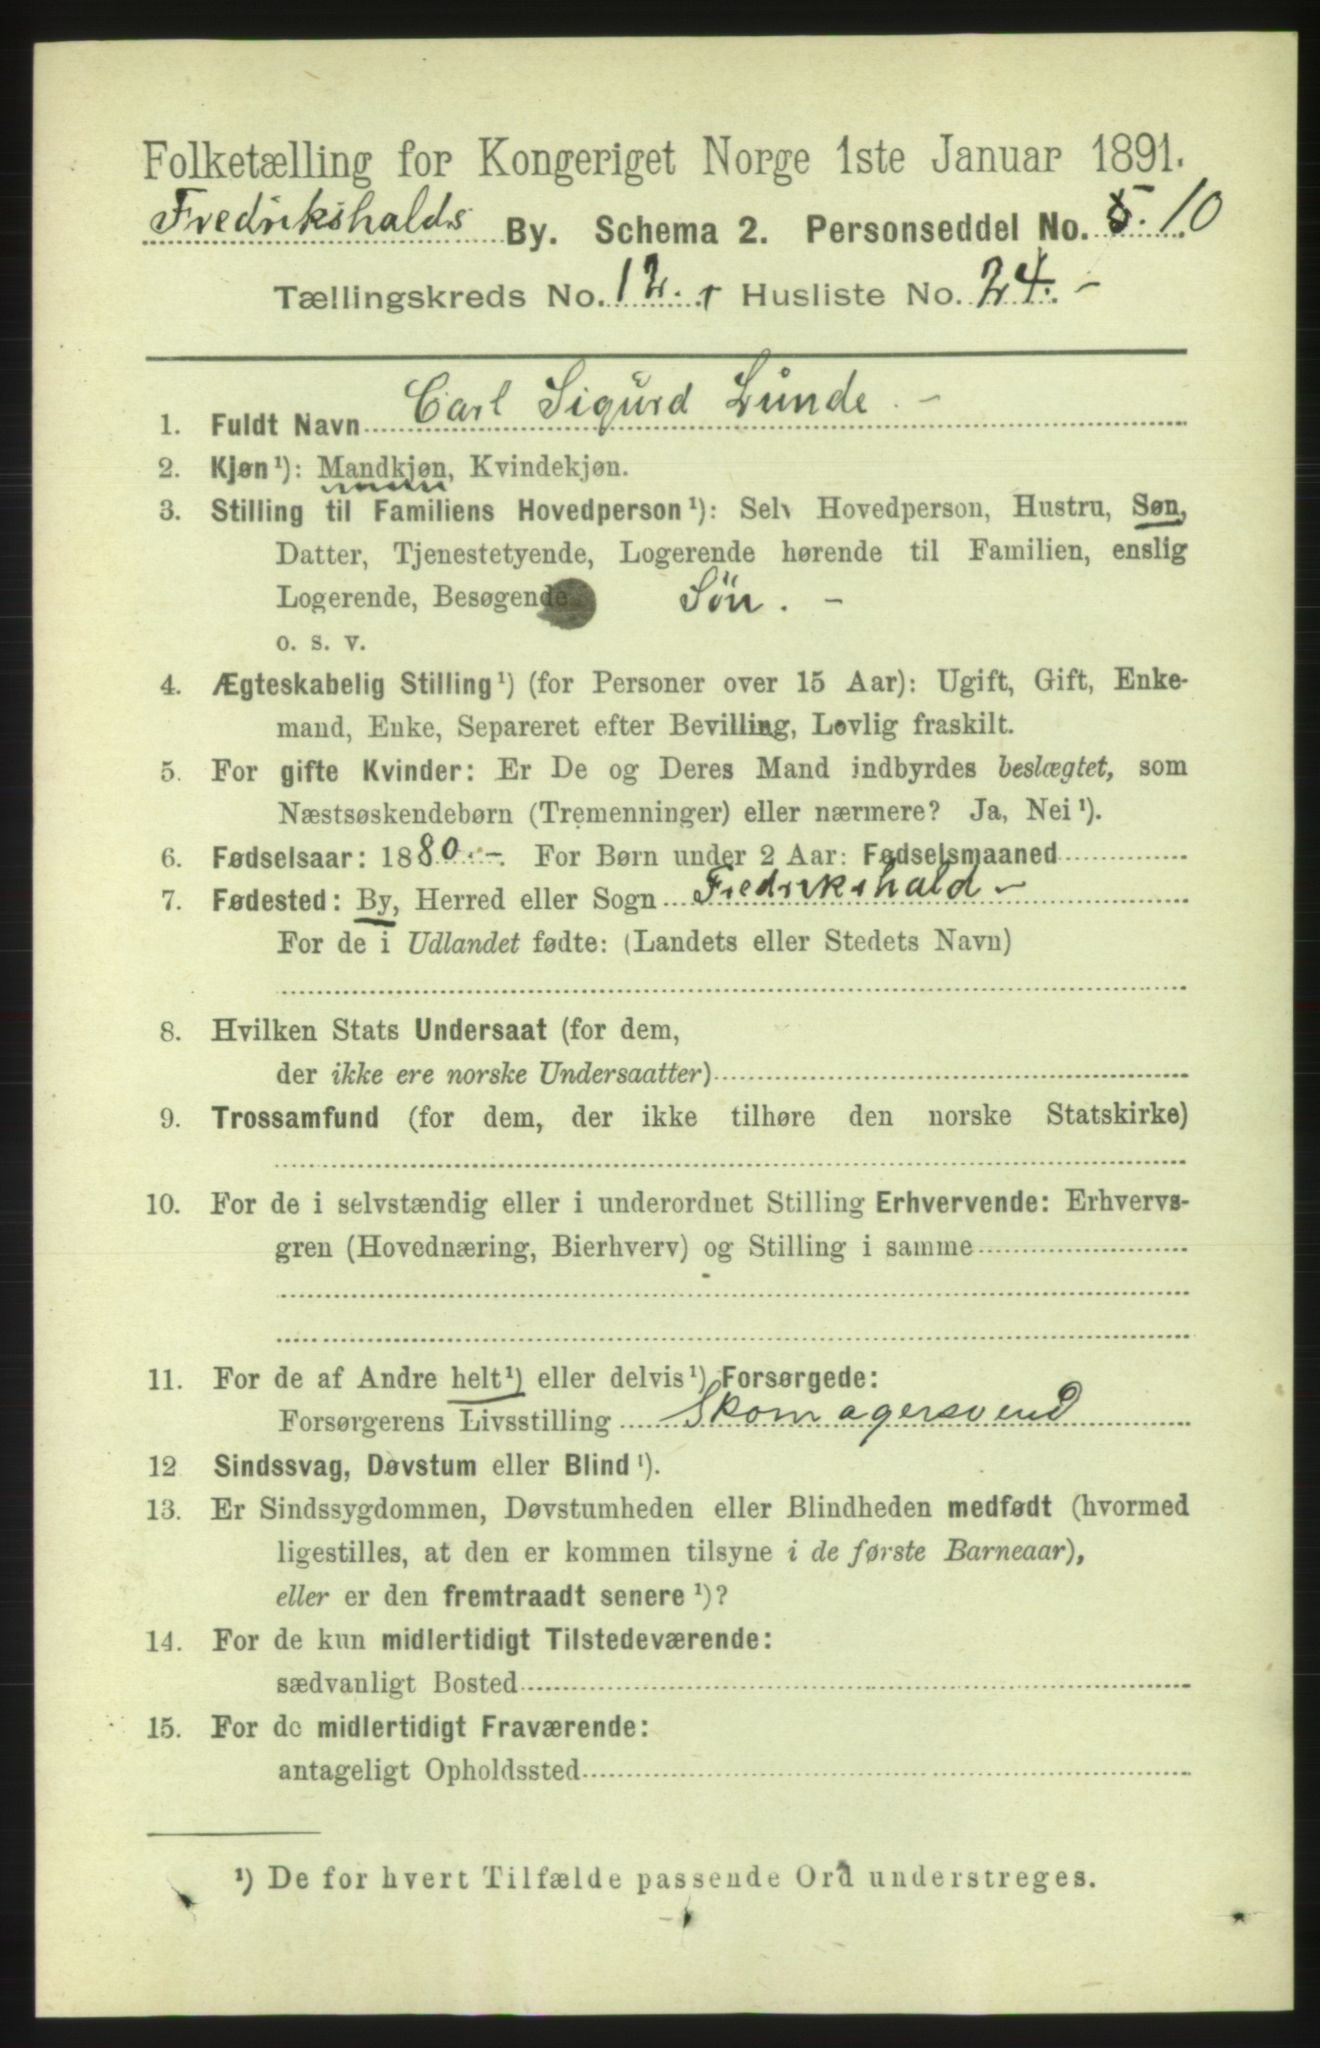 Folketælling for Kongeriget Norge 1ste Januar 1891.
Fredrikshalds By. Schema 2. Personseddel No. 5. 10
Tællingskreds No. 12. Husliste No. 24. -
1. Fuldt Navn Carl Sigurd Lunde. -
2. Kjøn¹): Mandkjøn, Kvindekjøn.
3. Stilling til Familiens Hovedperson¹): Selv Hovedperson, Hustru, Søn,
Datter, Tjenestetyende, Logerende hørende til Familien, enslig
Logerende, Besøgende Sön. -
o. s. v.
4. Ægteskabelig Stilling¹) (for Personer over 15 Aar): Ugift, Gift, Enke-
mand, Enke, Separeret efter Bevilling, Lovlig fraskilt.
5. For gifte Kvinder: Er De og Deres Mand indbyrdes beslægtet, som
Næstsøskendebørn (Tremenninger) eller nærmere? Ja, Nei¹).
6. Fødselsaar: 1880. -. For Børn under 2 Aar: Fødselsmaaned
7. Fødested: By, Herred eller Sogn Fredrikshald -
For de i Udlandet fødte: (Landets eller Stedets Navn)
8. Hvilken Stats Undersaat (for dem,
der ikke ere norske Undersaatter)
9. Trossamfund (for dem, der ikke tilhøre den norske Statskirke)
10. For de i selvstændig eller i underordnet Stilling Erhvervende: Erhvervs-
gren (Hovednæring, Bierhverv) og Stilling i samme
11. For de af Andre helt¹) eller delvis¹) Forsørgede:
Forsørgerens Livsstilling Skomagersvend
12 Sindssvag, Døvstum eller Blind¹).
13. Er Sindssygdommen, Døvstumheden eller Blindheden medfødt (hvormed
ligestilles, at den er kommen tilsyne i de første Barneaar),
eller er den fremtraadt senere¹)?
14. For de kun midlertidigt Tilstedeværende:
sædvanligt Bosted
15. For de midlertidigt Fraværende:
antageligt Opholdssted
¹) De for hvert Tilfælde passende Ord understreges.